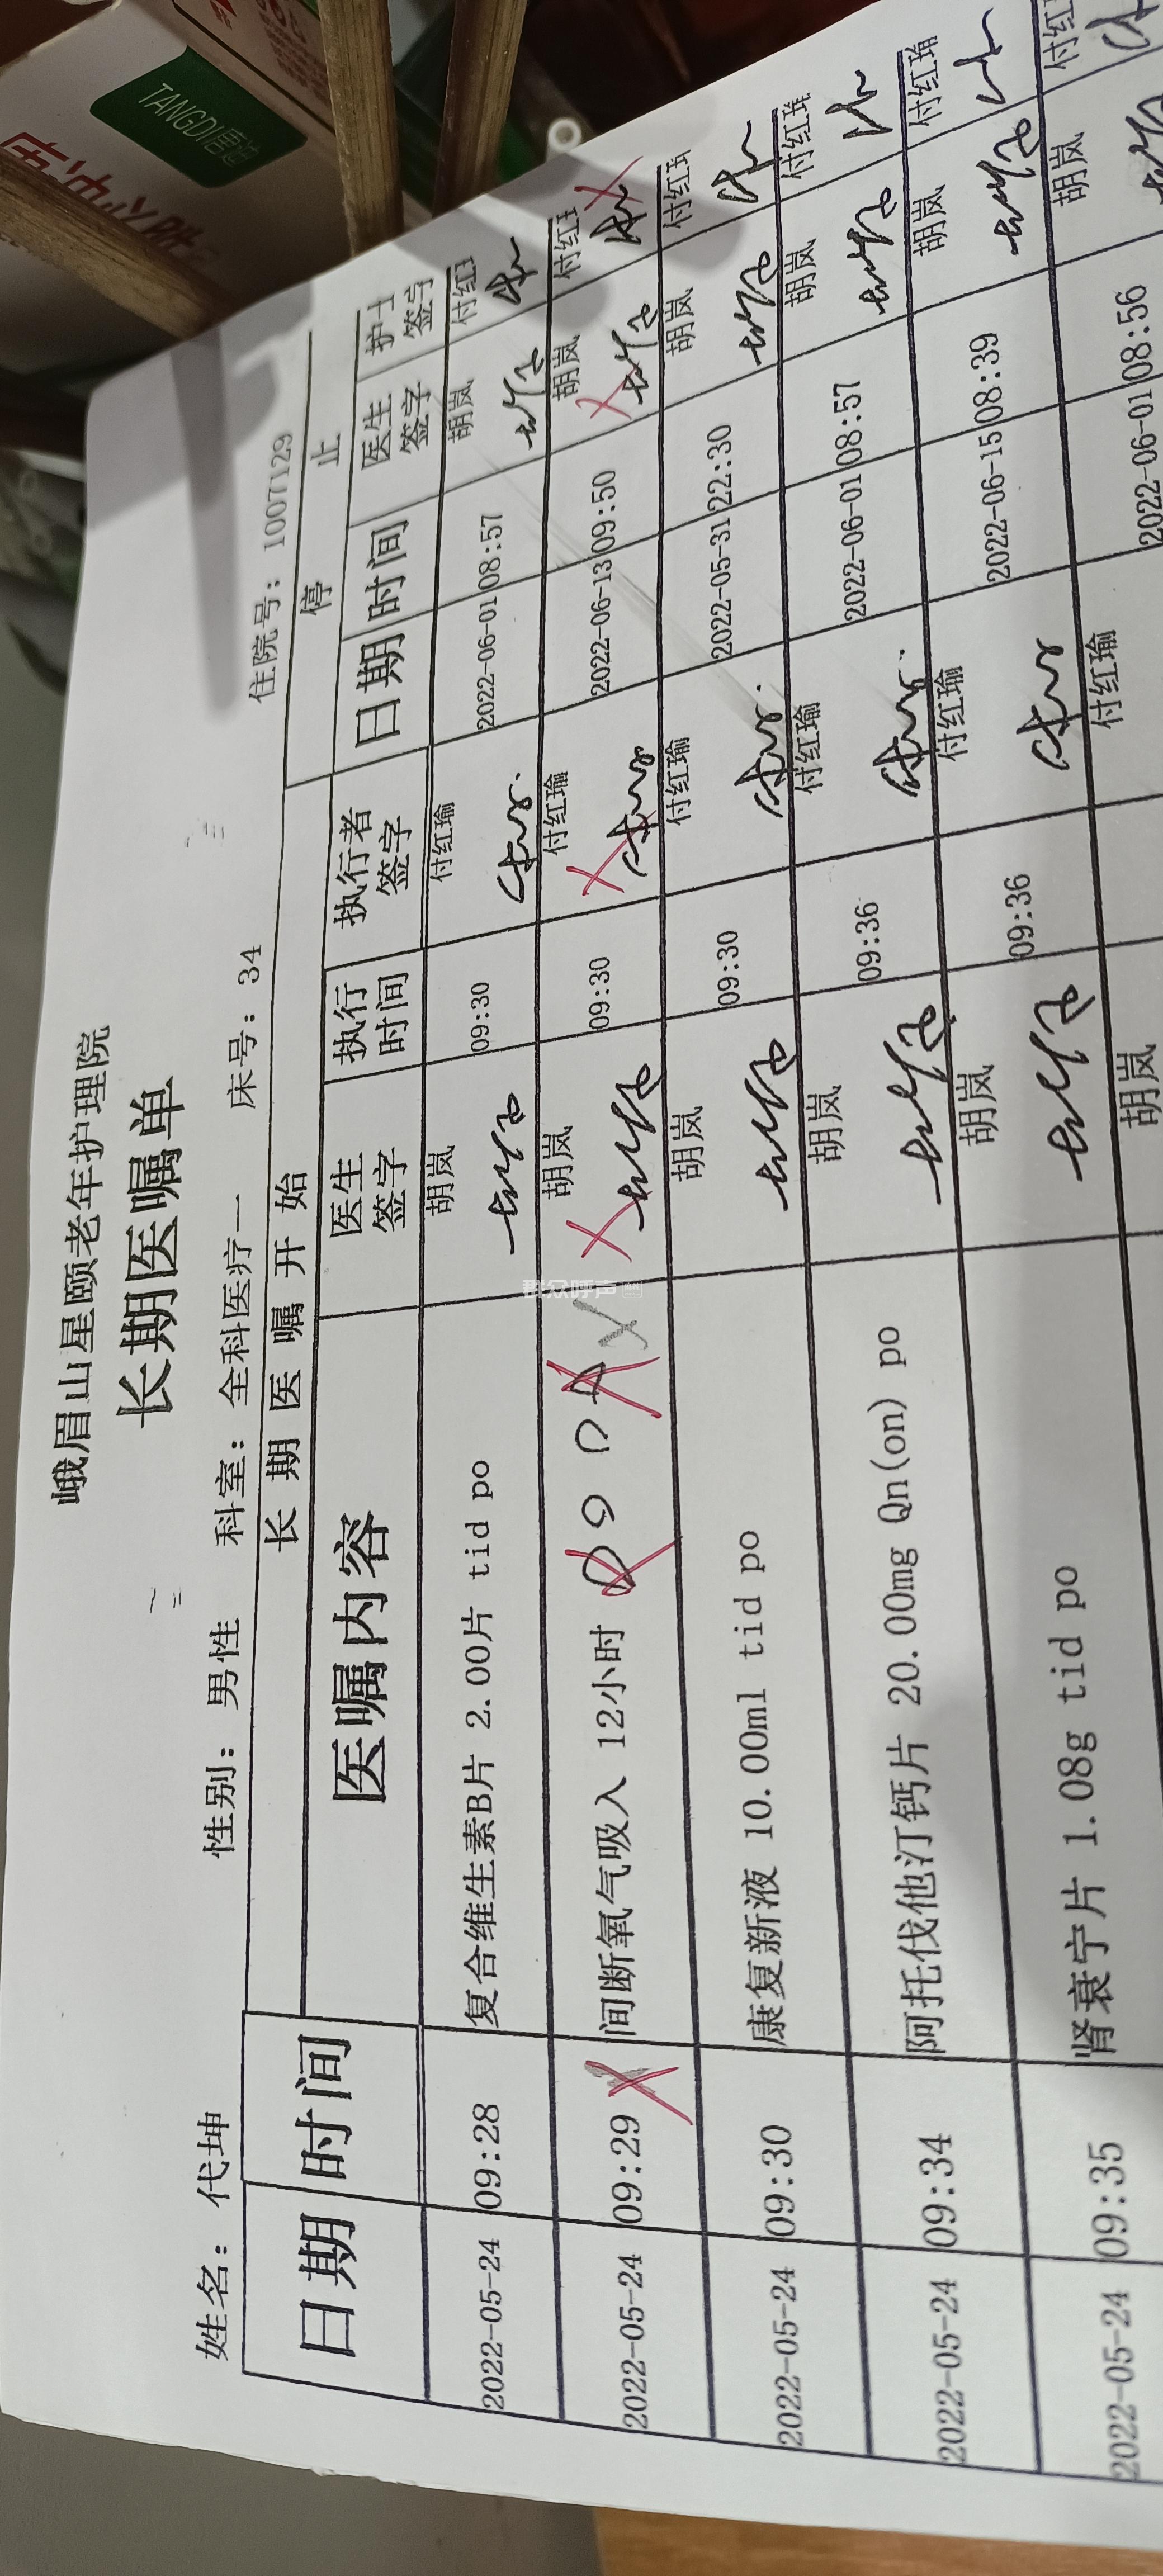 TANGDI唐迪
峨眉山星颐老年护理院
长期医嘱单
姓名：代坤 性别：男性 科室：全科医疗一 床号：34 住院号：1007129
长期医嘱开始 停止
日期 时间 医嘱内容 医生签字 执行时间 执行者签字 日期 时间 医生签字 护士签字
2022-05-24 09:28 复合维生素B片 2.00片 tid po 胡岚 09:30 付红瑜 2022-06-01 08:57 胡岚 付红
2022-05-24 09:29 间断氧气吸入 12小时 胡岚 09:30 付红瑜 2022-06-13 09:50 胡岚 付红
2022-05-24 09:30 康复新液 10.00ml tid po 胡岚 09:30 付红瑜 2022-05-31 22:30 胡岚 付红
2022-05-24 09:34 阿托伐他汀钙片 20.00mg Qn(on) po 胡岚 09:36 付红瑜 2022-06-01 08:57 胡岚 付红
2022-05-24 09:35 肾衰宁片 1.08g tid po 胡岚 09:36 付红瑜 2022-06-15 08:39 胡岚 付红
胡岚 付红瑜 2022-06-01 08:56 胡岚 付红
群众呼声